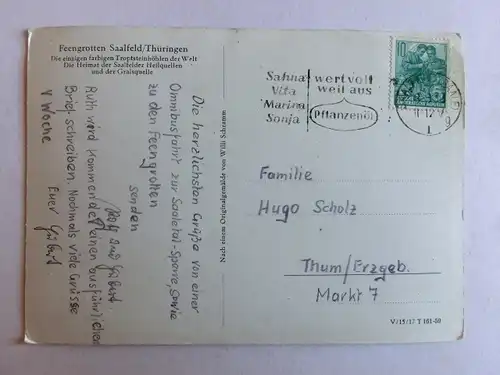 Feengrotten Saalfeld/Thüringen
Die einzigen farbigen Tropfsteinhöhlen der Welt
Die Heimat der Saalfelder Heilquellen
und der Gralsquelle
Die herzlichsten Grüße von einer
Omnibusfahrt zur Saaletal-Sperre, sowie
zu den Feengrotten
senden
und
Ruth wird kommende einen ausführlichen
Brief schreiben. Nochmals viele Grüsse
V Woche
Euer
Nach einem Originalgemälde von Willi Schramm
Sahna
Vita
Marina
Sonja
wertvoll
weil aus
Pflanzenöl
10
Familie
Hugo Scholz
Thum/Erzgeb.
Markt 7
V/15/17 T 161-60